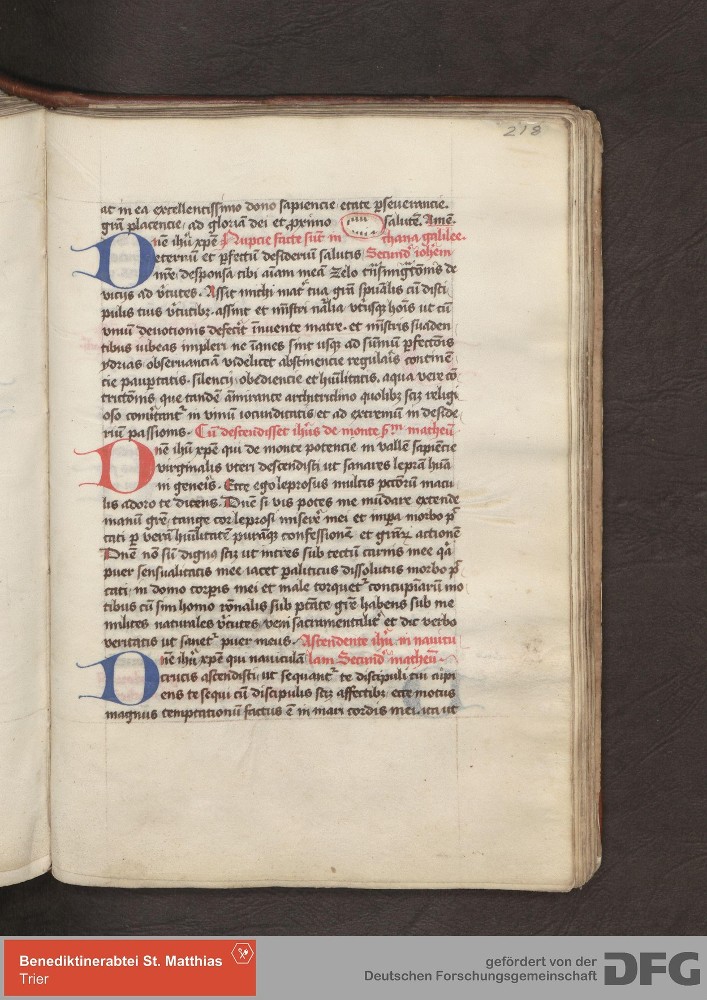 218
ac in ea excellentissimo dono sapiencie etate ꝑseverancie.
grām placencie, ad gloriam dei et ꝓximo salutē. Amē.
Dnē ihū xp̄e Nupcie facte sūt in chana galilee.
eternū et ꝑfectū desideriū salutis Secund' iohēm
mīe, desponsa tibi aīam meā zelo
viciis ad v̄tutes. Assit michi mat' tua grā spūalis cū disci
pulis tuis v̄tutibꝫ. assint et mīstri nālia vtriusqꝫ hoīs ut cū
vinū devotionis defec̄it inuente matre. et mīstris suaden
tibus iubeas impleri ne īanes sint usqꝫ ad sūmū ꝑfectōis
ydrias obseruanciā videlicet abstinencie regulāis continē
cie paupꝑtatis. silencii, obediencie et hūilitatis, aqua vere cō
tric̄tōnis, que tandē āmirante architriclino quolibꝫ scꝫ religi
oso in vinū iocunditatis et ad extremū in deside
riū passionis. Cū descendisset ihūs de monte sm̄ matheū
Dnē ihū xp̄e qui de monte potencie in vallē sapiēcie
virginalis vteri descendisti ut sanares leprā hūā
ni geneīs. Ecce ego leprosus multis pctōrū macu
lis adoro te dicens. Dnē si vis potes me mūdare extende
manū grē, tange cor leprosi miserē mei et morbo pc̄
cati ꝑ verā hūilitatē purāqꝫ confessionē et grāꝝ actionē
Dnē nō sū dignꝰ scꝫ ut intres sub tectū carnis mee qꝛ
puer sensualitatis mee iacet ꝑaliticus dissolutus morbo pc̄
cati, in domo corꝑis mei et male torquet' concupiāriū mo
tibus cū sim homo rōnalis sub ptāte grē habens sub me
milites naturales v̄tutes, veni sacramentalit' et dic verbo
veritatis ut sanet' puer meus. Ascendente ihū in navicu
Dnē ihū xp̄e qui naviculā lam Secund' matheū.
crucis ascendisti ut sequant' te discipuli tui cupi
ens te sequi cū discipulis scꝫ affectibꝫ ecce motus
magnus temptationū factus ē in mari cordis mei. ita ut
Benediktinerabtei St. Matthias
Trier
gefördert von der
Deutschen Forschungsgemeinschaft
DFG